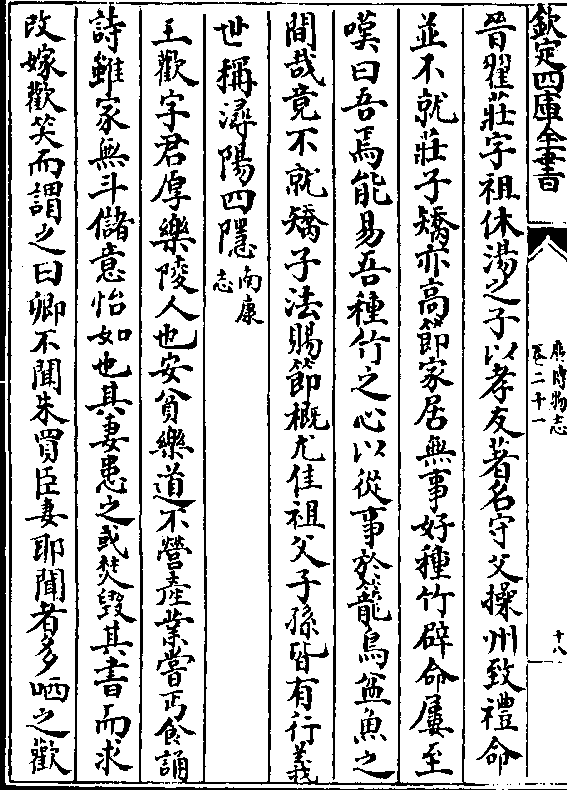 欽定四庫全書
廣博物志
卷二十一
十八
晉翟莊字祖休湯之子以孝友著名守父操州致禮命
並不就莊子矯亦高節家居無事好種竹辟命屢至
嘆曰吾焉能易吾種竹之心以從事於籠鳥盆魚之
間哉竟不就矯子法賜節概尤佳祖父子孫皆有行義
世稱潯陽四隱南康志
王歡字君厚樂陵人也安貧樂道不營產業嘗丐食誦
詩雖家無斗儲意怡如也其妻患之或焚毀其書而求
改嫁歡笑而謂之曰卿不聞朱買臣妻耶聞者多哂之歡